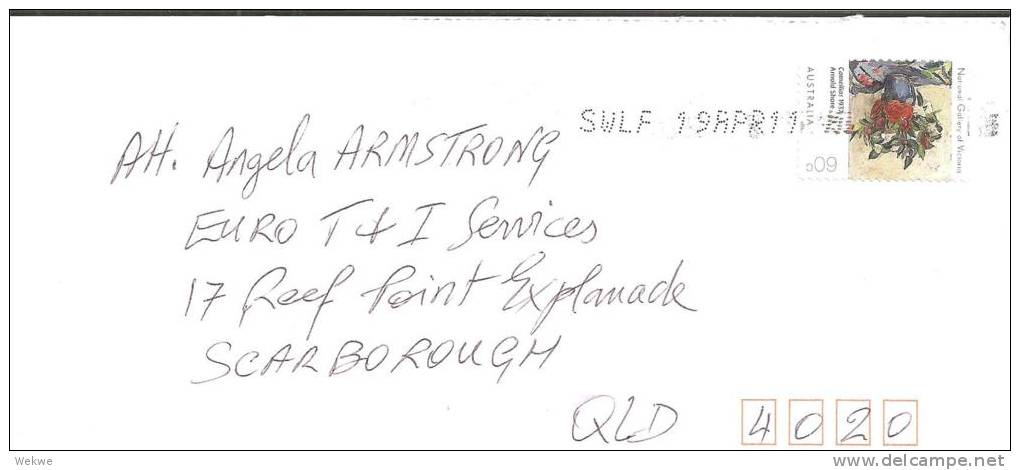 SWLF 19APR11
National Gallery of Victoria
Camellias 1937
Arnold Shore
AUSTRALIA
60c
Att. Angela ARMSTRONG
EURO T & I Services
17 Reef Point Explanade
SCARBOROUGH
QLD 4020
Wekwe
www.delcampe.net